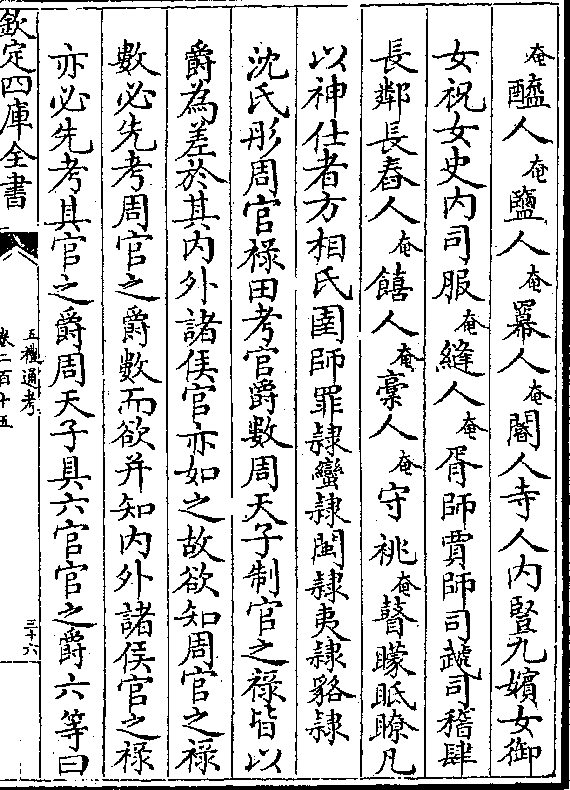 奄醯人奄鹽人奄冪人奄閽人寺人内豎九嬪女御
女祝女史内司服奄縫人奄胥師賈師司虣司稽肆
長鄰長舂人奄饎人奄槀人奄守祧奄瞽矇眡瞭凡
以神仕者方相氏圉師罪隷蠻隷閩隷夷隷貉隷
沈氏彤周官禄田考官爵數周天子制官之禄皆以
爵為差於其内外諸侯官亦如之故欲知周官之禄
數必先考周官之爵數而欲并知内外諸侯官之禄
亦必先考其官之爵周天子具六官官之爵六等曰
欽定四庫全書
五禮通考
卷二百十五
三十六